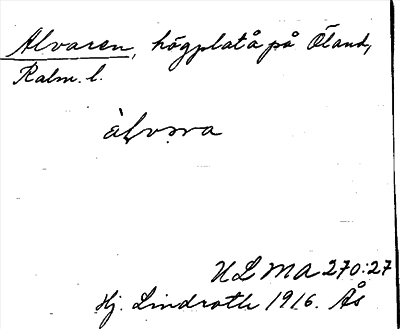 Alvaren, högplatå på Öland,
Kalm. l.
ULMA 270:27
Hj. Lindroth 1916. Ås